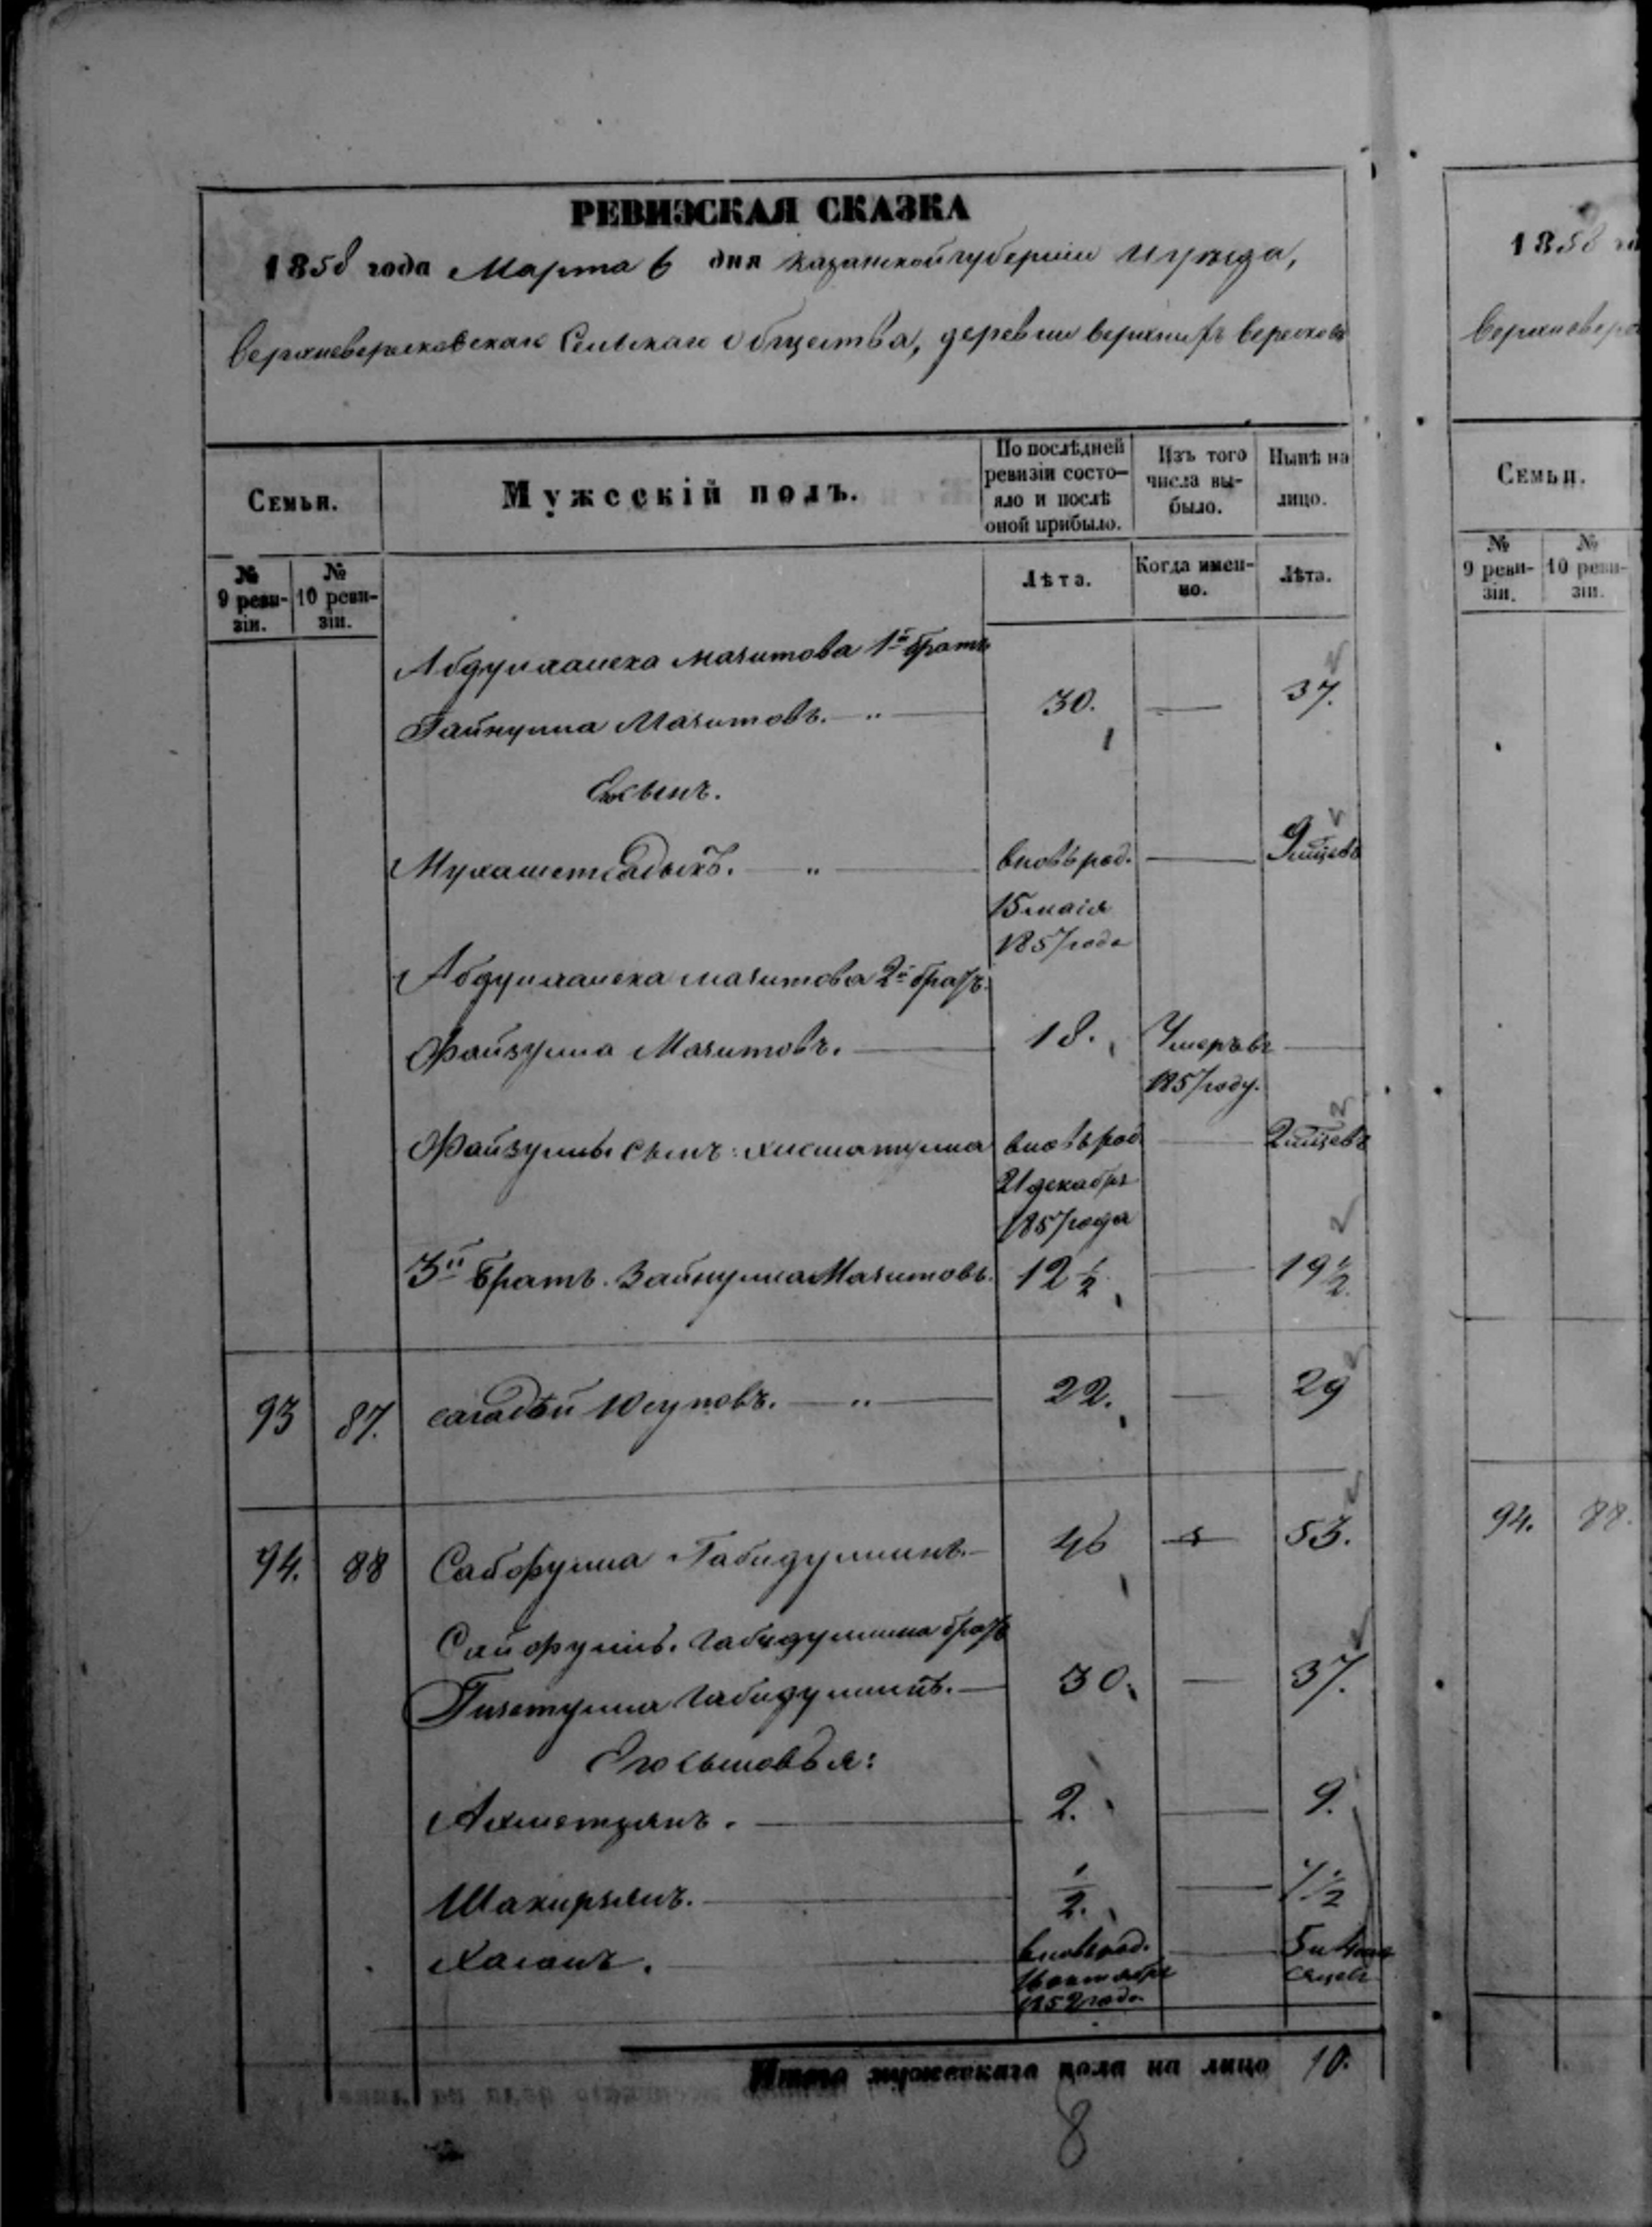 РЕВИЗСКАЯ СКАЗКА
1858 года Марта 6 дня Казанской губерніи и уѣзда,
Верхневересковскаго Сельскаго общества, деревни верхнихъ Вересковъ
Семьи.
Мужескій полъ.
По послѣдней ревизіи состо-
яло и послѣ
оной прибыло.
Изъ того
числа вы-
было.
Нынѣ на
лицо.
№ 9 реви-
зіи.
№ 10 реви-
зіи.
Лѣта.
Когда имен-
но.
Лѣта.
Абдулханека Мачитова 1й братъ
Гайнулла Мачитовъ. 30. — 37.
Его сынъ.
Мухаметсадыкъ. вновь род. — 9 мѣсяцевъ
15 маія
1857 года
Абдулханека Мачитова 2й братъ
Файзулла Мачитовъ. 18. Умеръ въ —
1857 году.
Файзуллы сынъ: Хисматулла вновь род — 2 мѣсяцевъ
21 декабря
1857 года
3й братъ Зайнулла Мачитовъ. 12 1/2 — 19 1/2
93 87. Сагадѣй Юсуповъ. 22. — 29
94. 88 Сайфулла Габидуллинъ. 46 — 53.
Сайфуллы Габидуллина братъ
Гизетулла Габидуллинъ. 30. — 37.
Его сыновья:
Ахметзянъ. 2. — 9.
Шакирзянъ. 1/2. — 7 1/2
Хасанъ. вновь род. — 5 и 4 мѣ
16 октября сяцевъ
1852 года
Итого мужескаго пола на лицо 10.
8
1858
Семьи.
№ 9 реви-
зіи.
№ 10 реви-
зіи.
94. 88.